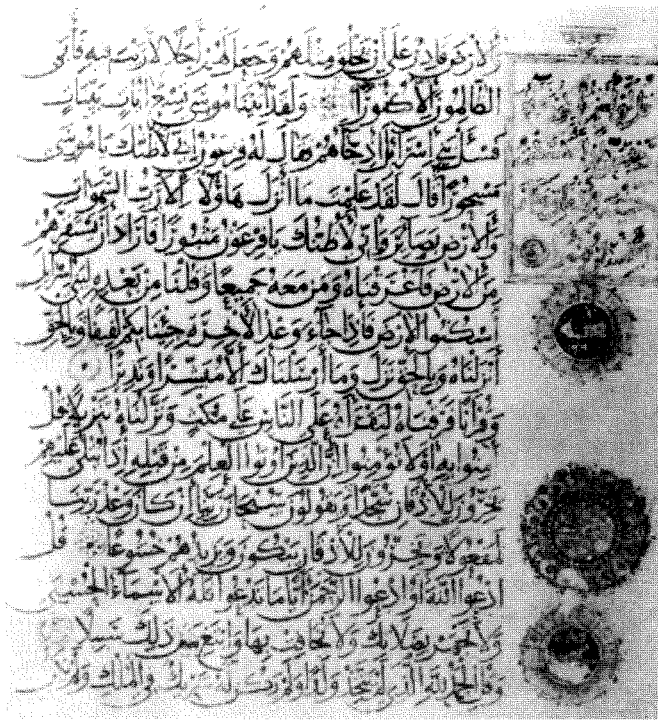 والارض قادر على ان يخلق مثلهم وجعل لهم اجلا لا ريب فيه فابى
الظالمون الا كفورا ولقد اتينا موسى تسع ايات بينات
فسئل بني اسرائل اذ جاءهم فقال له فرعون اني لاظنك يا موسى
مسحورا قال لقد علمت ما انزل هاؤلاء الا رب السموات
والارض بصائر واني لاظنك يا فرعون مثبورا فاراد ان يستفزهم
من الارض فاغرقناه ومن معه جميعا وقلنا من بعده لبني اسرائل
اسكنوا الارض فاذا جاء وعد الاخرة جئنا بكم لفيفا وبالحق
انزلناه وبالحق نزل وما ارسلناك الا مبشرا ونذيرا
وقرانا فرقناه لتقراه على الناس على مكث ونزلناه تنزيلا قل
امنوا به او لا تؤمنوا ان الذين اوتوا العلم من قبله اذا يتلى عليهم
يخرون للاذقان سجدا ويقولون سبحان ربنا ان كان وعد ربنا
لمفعولا ويخرون للاذقان يبكون ويزيدهم خشوعا قل
ادعوا الله او ادعوا الرحمن ايا ما تدعوا فله الاسماء الحسنى
ولا تجهر بصلاتك ولا تخافت بها وابتغ بين ذلك سبيلا
وقل الحمد لله الذي لم يتخذ ولدا ولم يكن له شريك في الملك ولم يكن